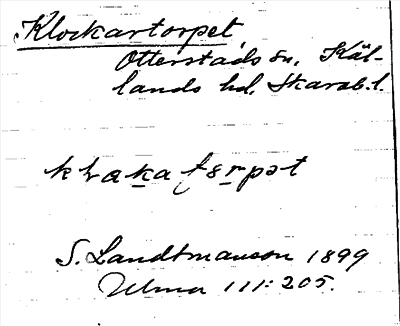 Klockartorpet,
Otterstads sn. Käl-
lands hd. Skarab. l.
S. Landtmanson 1899
Ulma 111:205.